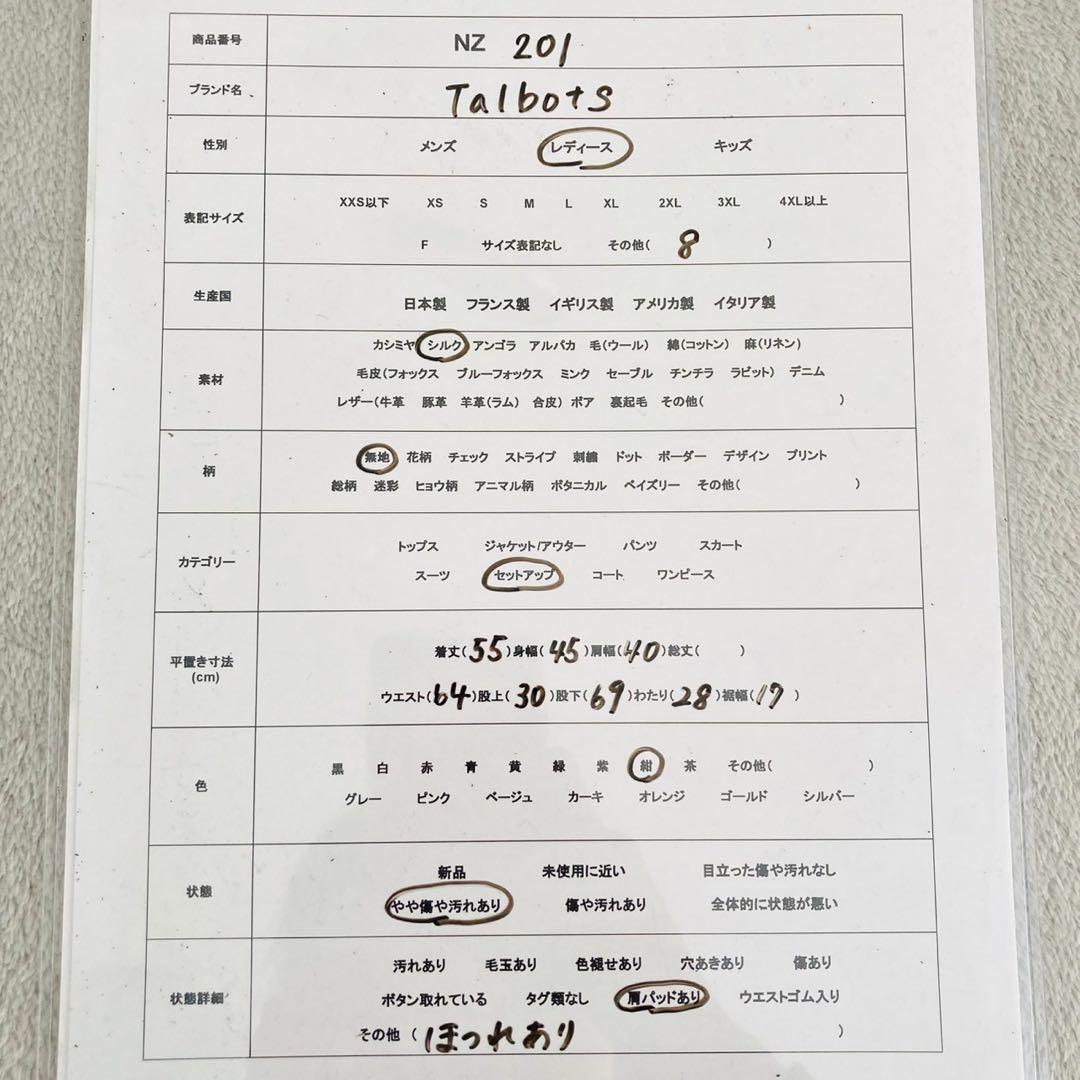 商品番号 NZ 201
ブランド名 Talbots
性別 メンズ レディース キッズ
表記サイズ XXS以下 XS S M L XL 2XL 3XL 4XL以上
F サイズ表記なし その他( 8 )
生産国 日本製 フランス製 イギリス製 アメリカ製 イタリア製
素材 カシミヤ シルク アンゴラ アルパカ 毛(ウール) 綿(コットン) 麻(リネン)
毛皮(フォックス ブルーフォックス ミンク セーブル チンチラ ラビット) デニム
レザー(牛革 豚革 羊革(ラム) 合皮) ボア 裏起毛 その他( )
柄 無地 花柄 チェック ストライプ 刺繍 ドット ボーダー デザイン プリント
総柄 迷彩 ヒョウ柄 アニマル柄 ボタニカル ペイズリー その他( )
カテゴリー トップス ジャケット/アウター パンツ スカート
スーツ セットアップ コート ワンピース
平置き寸法 (cm) 着丈(55)身幅(45)肩幅(40)総丈( )
ウエスト(64)股上(30)股下(69)わたり(28)裾幅(17)
色 黒 白 赤 青 黄 緑 紫 紺 茶 その他( )
グレー ピンク ベージュ カーキ オレンジ ゴールド シルバー
状態 新品 未使用に近い 目立った傷や汚れなし
やや傷や汚れあり 傷や汚れあり 全体的に状態が悪い
状態詳細 汚れあり 毛玉あり 色褪せあり 穴あきあり 傷あり
ボタン取れている タグ類なし 肩パッドあり ウエストゴム入り
その他 ( ほつれあり )